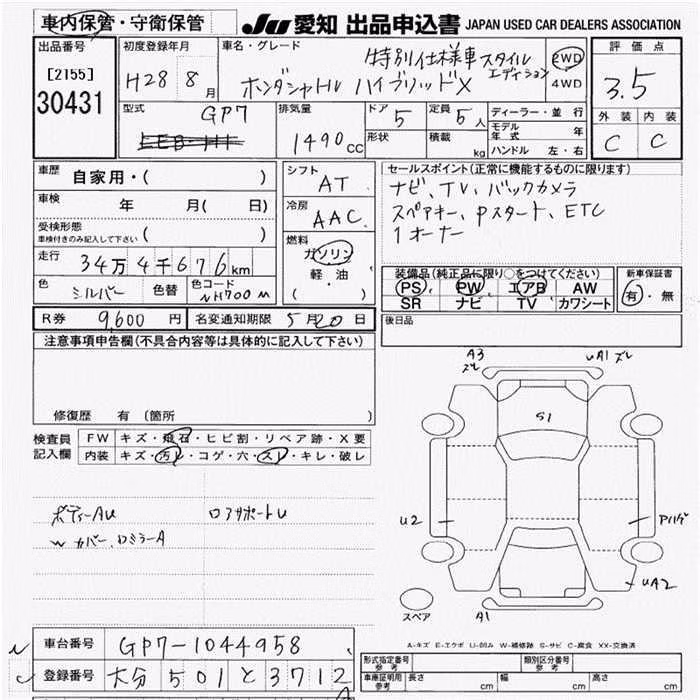 車内保管・守衛保管
JU 愛知 出品申込書 JAPAN USED CAR DEALERS ASSOCIATION
出品番号
[2155]
30431
初度登録年月
H28 8月
車名・グレード
特別仕様車 スタイルエディション
ホンダシャトル ハイブリッドX
2WD
4WD
評価点
3.5
外装 内装
C C
型式
GP7
排気量
1490cc
ドア 5
形状
定員 5人
積載 kg
ディーラー・並行
モデル年式 年
ハンドル 左・右
車歴
自家用・( )
車検 年 月( 日)
受検形態
車検付きのみ記入して下さい ( )
走行 34万4千676km
色 シルバー 色替 色コード NH700M
シフト
AT
冷房
AAC
燃料
ガソリン
軽・油
( )
セールスポイント(正常に機能するものに限ります)
ナビ、TV、バックカメラ
スペアキー、Pスタート、ETC
1オーナー
装備品(純正品に限り○をつけてください)
PS PW エアB AW
SR ナビ TV カワシート
新車保証書
有・無
R券 9,600円 名変通知期限 5月20日
後日品
注意事項申告欄(不具合内容等は具体的に記入して下さい)
修復歴 有 (箇所 )
検査員記入欄
FW キズ・飛石・ヒビ割・リペア跡・X要
内装 キズ・汚レ・コゲ・穴・スレ・キレ・破レ
ボディーAU ロアサポートU
カバー、ロミラーA
A3 ズレ
UA1 ズレ
S1
U2
Pハゲ
UA2
A1
スペア
A-キズ E-エクボ U-凹み W-補修跡 S-サビ C-腐食 XX-交換済
車台番号 GP7-1044958
登録番号 大分 501 と 3712
形式指定番号 参考
類別区分番号 参考
車庫証明用 参考 長さ cm 幅 cm 高さ cm